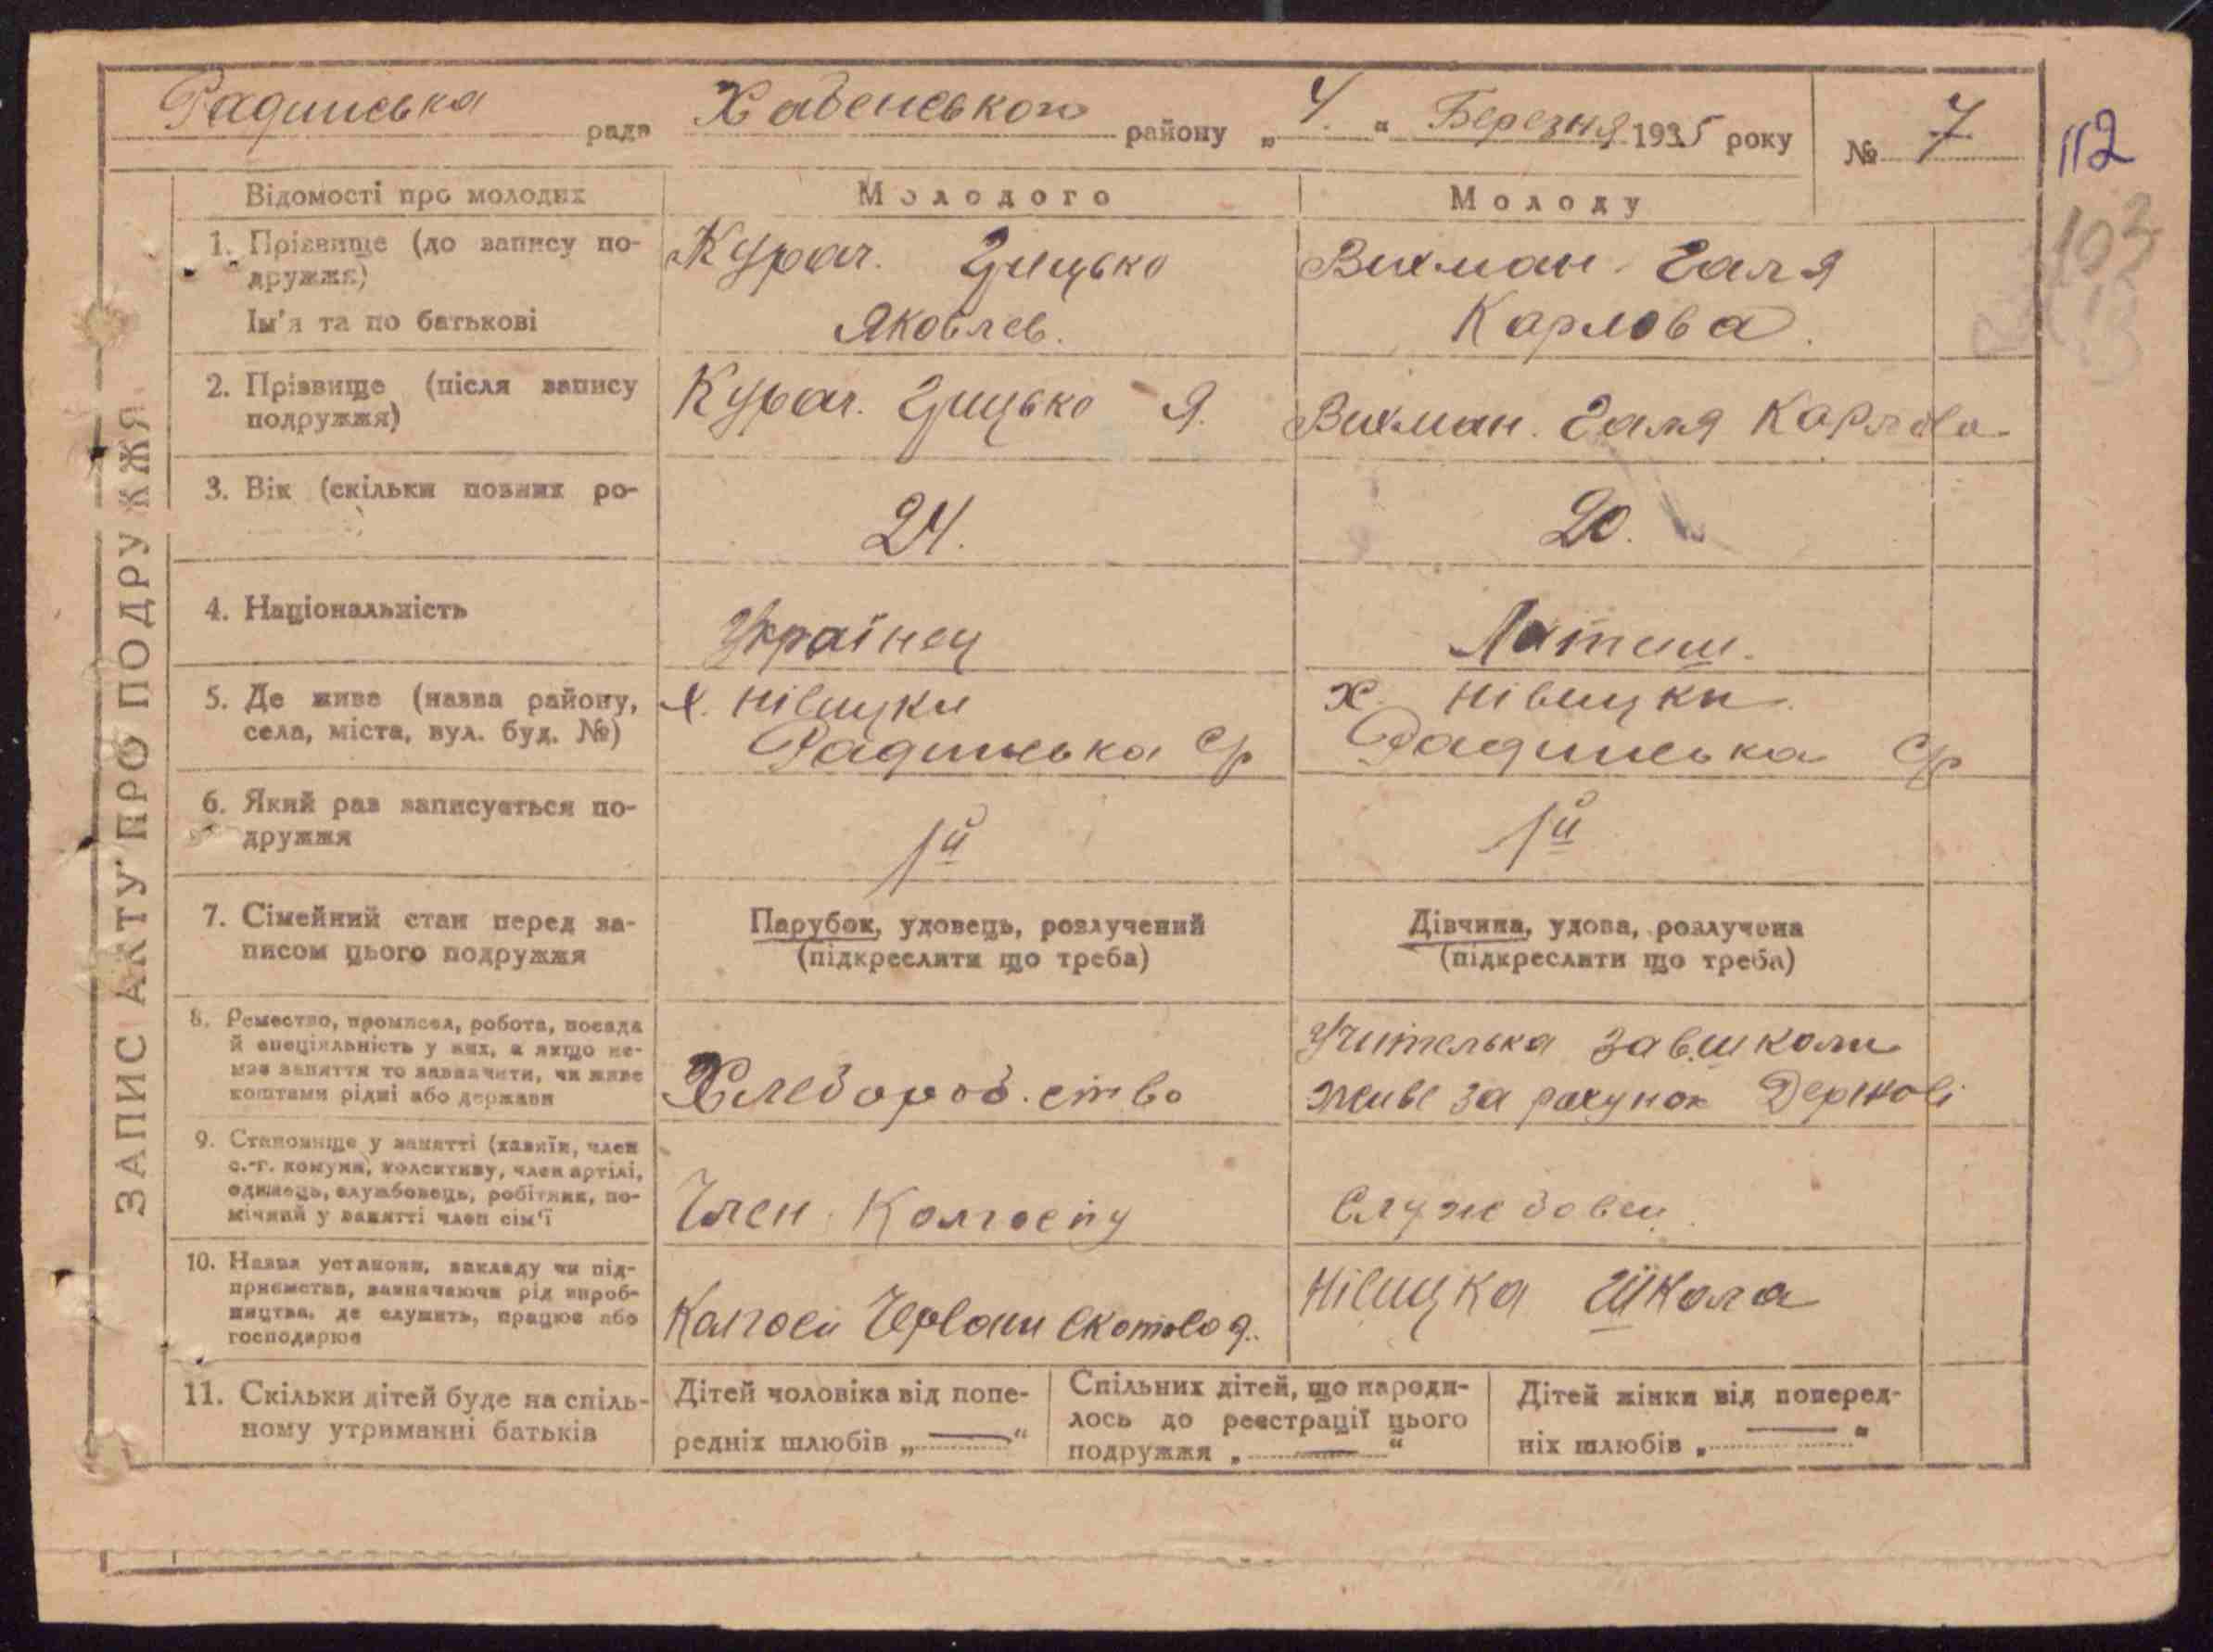 Радинська рада Хабенського району „ 4. “ Березня 1935 року № 7
112
103
ЗАПИС АКТУ ПРО ПОДРУЖЖЯ
Відомості про молодих
Молодого
Молоду
1. Прізвище (до запису по-
дружжя)
Ім'я та по батькові
Курач. Грицько
Яковлев.
Вихман Галя
Карлова.
2. Прізвище (після запису
подружжя)
Курач. Грицько Я.
Вихман. Галя Карлова
3. Вік (скільки повних ро-
24.
20.
4. Національність
Українец
Латиш.
5. Де живе (назва району,
села, міста, вул. буд. №)
х. Нівицки
Радинська ср
х. Нівицки
Радинська ср
6. Який раз записується по-
дружжя
1й
1й
7. Сімейний стан перед за-
писом цього подружжя
Парубок, удовець, розлучений
(підкреслити що треба)
Дівчина, удова, розлучена
(підкреслити що треба)
8. Ремество, промисел, робота, посада
й спеціяльність у них, а якщо не-
має заняття то зазначити, чи живе
коштами рідні або держави
Хлебороб.ство
Учителька завшколи
живе за рахунок Держові
9. Становище у занятті (хазяїн, член
с.-г. комуни, колективу, член артілі,
одинець, службовець, робітник, по-
мічний у занятті член сім'ї
Член Колгоспу
Службовец.
10. Назва установи, закладу чи під-
приємства, зазначаючи рід вироб-
ництва, де служить, працює або
господарює
Колгосп Червони Скотовод.
Нівицка Школа
11. Скільки дітей буде на спіль-
ному утриманні батьків
Дітей чоловіка від попе-
редніх шлюбів „ — “
Спільних дітей, що народи-
лось до реєстрації цього
подружжя „ — “
Дітей жінки від поперед-
ніх шлюбів „ — “